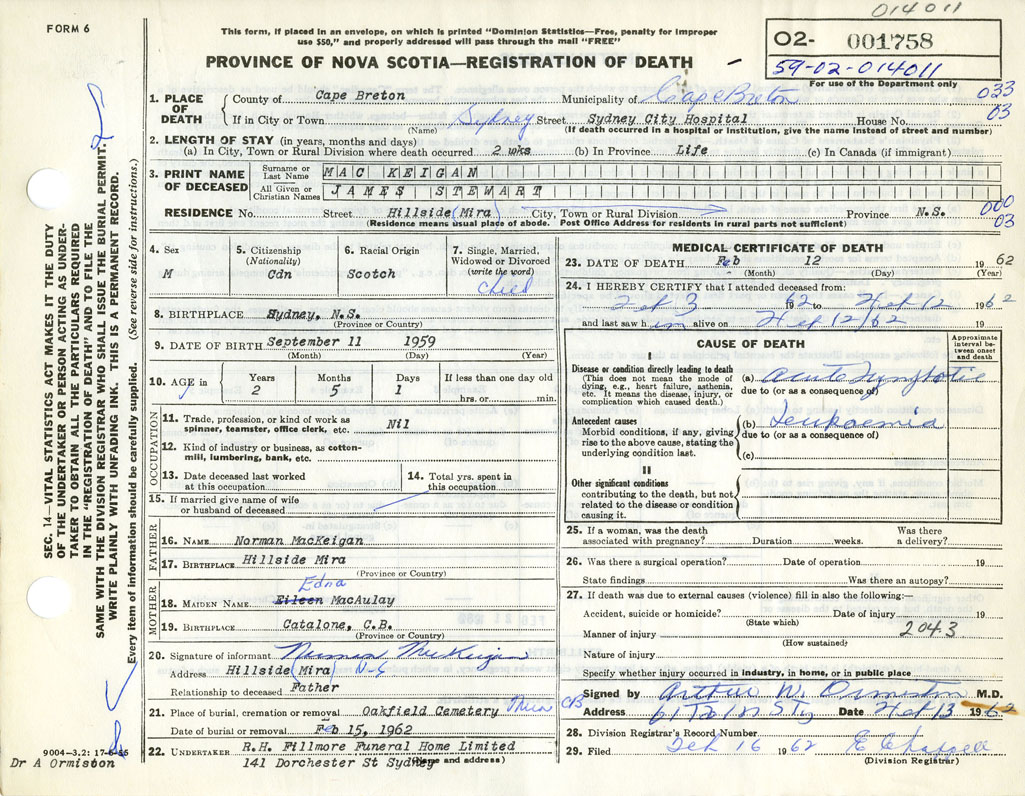 014011
FORM 6
This form, if placed in an envelope, on which is printed "Dominion Statistics—Free, penalty for improper
use $50," and properly addressed will pass through the mail "FREE"
PROVINCE OF NOVA SCOTIA—REGISTRATION OF DEATH
02- 001758
59-02-014011
For use of the Department only
033
03
1. PLACE OF DEATH
County of Cape Breton Municipality of Cape Breton
If in City or Town Sydney Street Sydney City Hospital House No.
(Name) (If death occurred in a hospital or institution, give the name instead of street and number)
2. LENGTH OF STAY (in years, months and days)
(a) In City, Town or Rural Division where death occurred 2 wks (b) In Province Life (c) In Canada (if immigrant)
3. PRINT NAME OF DECEASED
Surname or Last Name MAC KEIGAN
All Given or Christian Names JAMES STEWART
RESIDENCE No. Street Hillside (Mira) City, Town or Rural Division Province N.S.
(Residence means usual place of abode. Post Office Address for residents in rural parts not sufficient)
000
03
4. Sex
M
5. Citizenship
(Nationality)
Cdn
6. Racial Origin
Scotch
7. Single, Married,
Widowed or Divorced
(write the word)
child
8. BIRTHPLACE Sydney, N.S.
(Province or Country)
9. DATE OF BIRTH September 11 1959
(Month) (Day) (Year)
10. AGE in
Years Months Days If less than one day old
2 5 1 hrs. or min.
OCCUPATION
11. Trade, profession, or kind of work as
spinner, teamster, office clerk, etc. Nil
12. Kind of industry or business, as cotton-
mill, lumbering, bank, etc.
13. Date deceased last worked
at this occupation
14. Total yrs. spent in
this occupation
15. If married give name of wife
or husband of deceased
FATHER
16. NAME Norman MacKeigan
17. BIRTHPLACE Hillside Mira
(Province or Country)
MOTHER
Edna
18. MAIDEN NAME Eileen MacAulay
19. BIRTHPLACE Catalone, C.B.
(Province or Country)
20. Signature of informant Norman MacKeigan
Address Hillside (Mira) N-S
Relationship to deceased Father
21. Place of burial, cremation or removal Oakfield Cemetery Mira C/B
Date of burial or removal Feb 15, 1962
22. UNDERTAKER R.H. Fillmore Funeral Home Limited
141 Dorchester St Sydney
(Name and address)
MEDICAL CERTIFICATE OF DEATH
23. DATE OF DEATH Feb 12 1962
(Month) (Day) (Year)
24. I HEREBY CERTIFY that I attended deceased from:
Feb 3 1962 to Feb 12 1962
and last saw him alive on Feb 12/62 19
CAUSE OF DEATH
Approximate interval between onset and death
I
Disease or condition directly leading to death
(This does not mean the mode of
dying, e.g., heart failure, asthenia,
etc. It means the disease, injury, or
complication which caused death.)
(a) Acute Lymphatic
due to (or as a consequence of)
Antecedent causes
Morbid conditions, if any, giving
rise to the above cause, stating the
underlying condition last.
(b) Leukaemia
due to (or as a consequence of)
(c)
II
Other significant conditions
contributing to the death, but not
related to the disease or condition
causing it.
25. If a woman, was the death Was there
associated with pregnancy? Duration weeks. a delivery?
26. Was there a surgical operation? Date of operation 19
State findings Was there an autopsy?
27. If death was due to external causes (violence) fill in also the following:—
Accident, suicide or homicide? Date of injury 19
(State which)
204.3
Manner of injury
(How sustained)
Nature of injury
Specify whether injury occurred in industry, in home, or in public place
Signed by Arthur W. Ormiston M.D.
Address Date Feb 13 1962
28. Division Registrar's Record Number
29. Filed Feb 16 1962
(Division Registrar)
SEC. 14—VITAL STATISTICS ACT MAKES IT THE DUTY
OF THE UNDERTAKER OR PERSON ACTING AS UNDER-
TAKER TO OBTAIN ALL THE PARTICULARS REQUIRED
IN THE "REGISTRATION OF DEATH" AND TO FILE THE
SAME WITH THE DIVISION REGISTRAR WHO SHALL ISSUE THE BURIAL PERMIT.
WRITE PLAINLY WITH UNFADING INK. THIS IS A PERMANENT RECORD.
Every item of information should be carefully supplied. (See reverse side for instructions.)
9004-3.2: 17-6-55
Dr A Ormiston